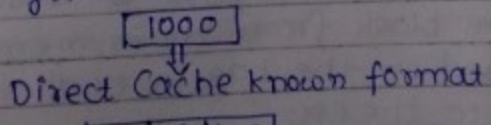 1000
Direct Cache known format